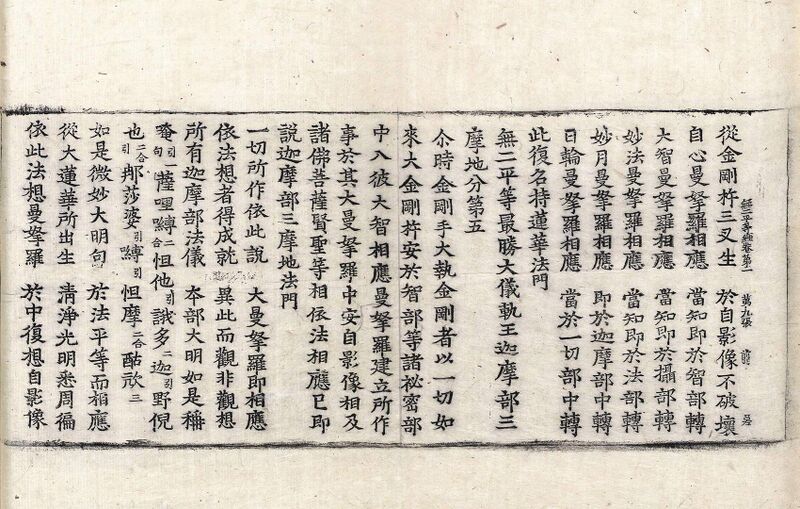 無二平等經卷第一 第九張 㽵
從金剛杵三叉生 於自影像不破壞
自心曼拏羅相應 當知即於智部轉
大智曼拏羅相應 當知即於攝部轉
妙法曼拏羅相應 當知即於法部轉
妙月曼拏羅相應 即於迦摩部中轉
日輪曼拏羅相應 當於一切部中轉
此復名持蓮華法門
無二平等最勝大儀軌王迦摩部三
摩地分第五
尒時金剛手大執金剛者以一切如
來大金剛杵安於智部等諸祕密部
中入彼大智相應曼拏羅建立所作
事於其大曼拏羅中安自影像相及
諸佛菩薩賢聖等相依法相應已即
說迦摩部三摩地法門
一切所作依此說 大曼拏羅即相應
依法想者得成就 異此而觀非觀想
所有迦摩部法儀 本部大明如是稱
唵引一句薩哩嚩二合怛他引誐多二迦引野倪
也二合引那莎婆引嚩引怛摩二合酤欣三
如是微妙大明句 於法平等而相應
從大蓮華所出生 清淨光明悉周徧
依此法想曼拏羅 於中復想自影像